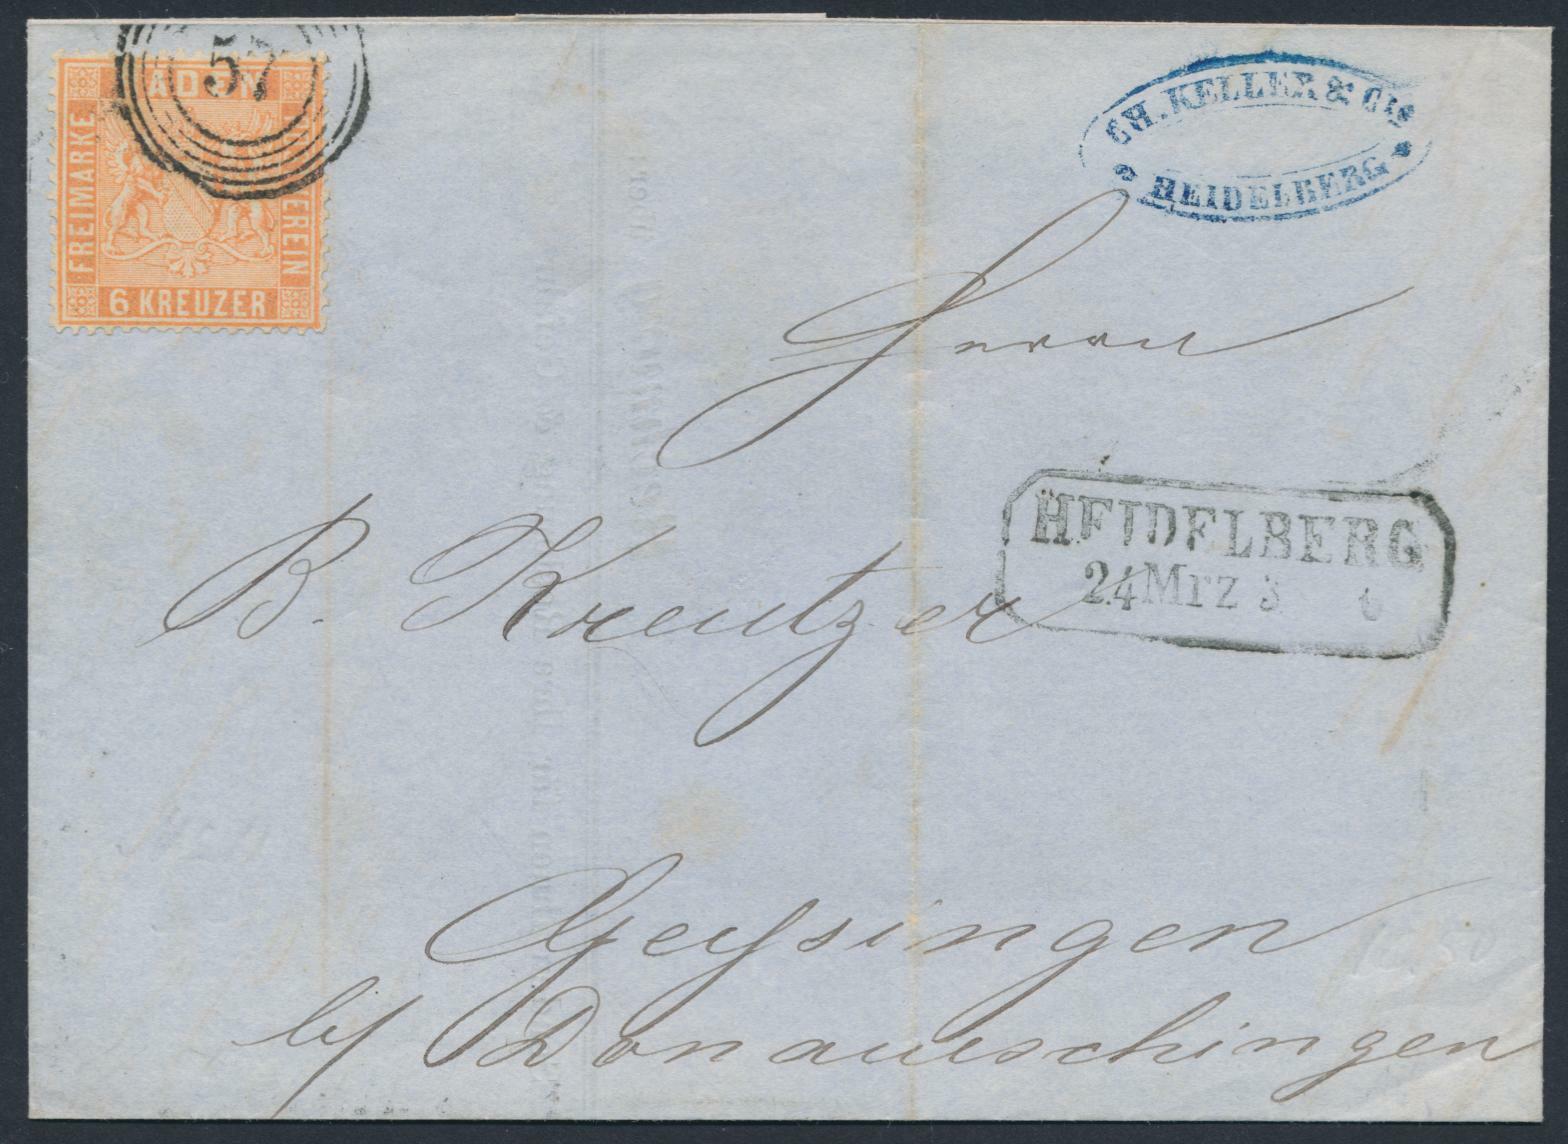 57
FREIMARKE
6 KREUZER
CH. KELLER & CIE
HEIDELBERG
Herrn
HEIDELBERG
24 Mrz 3 6
B. Kreutzer
Geysingen
b/ Donaueschingen